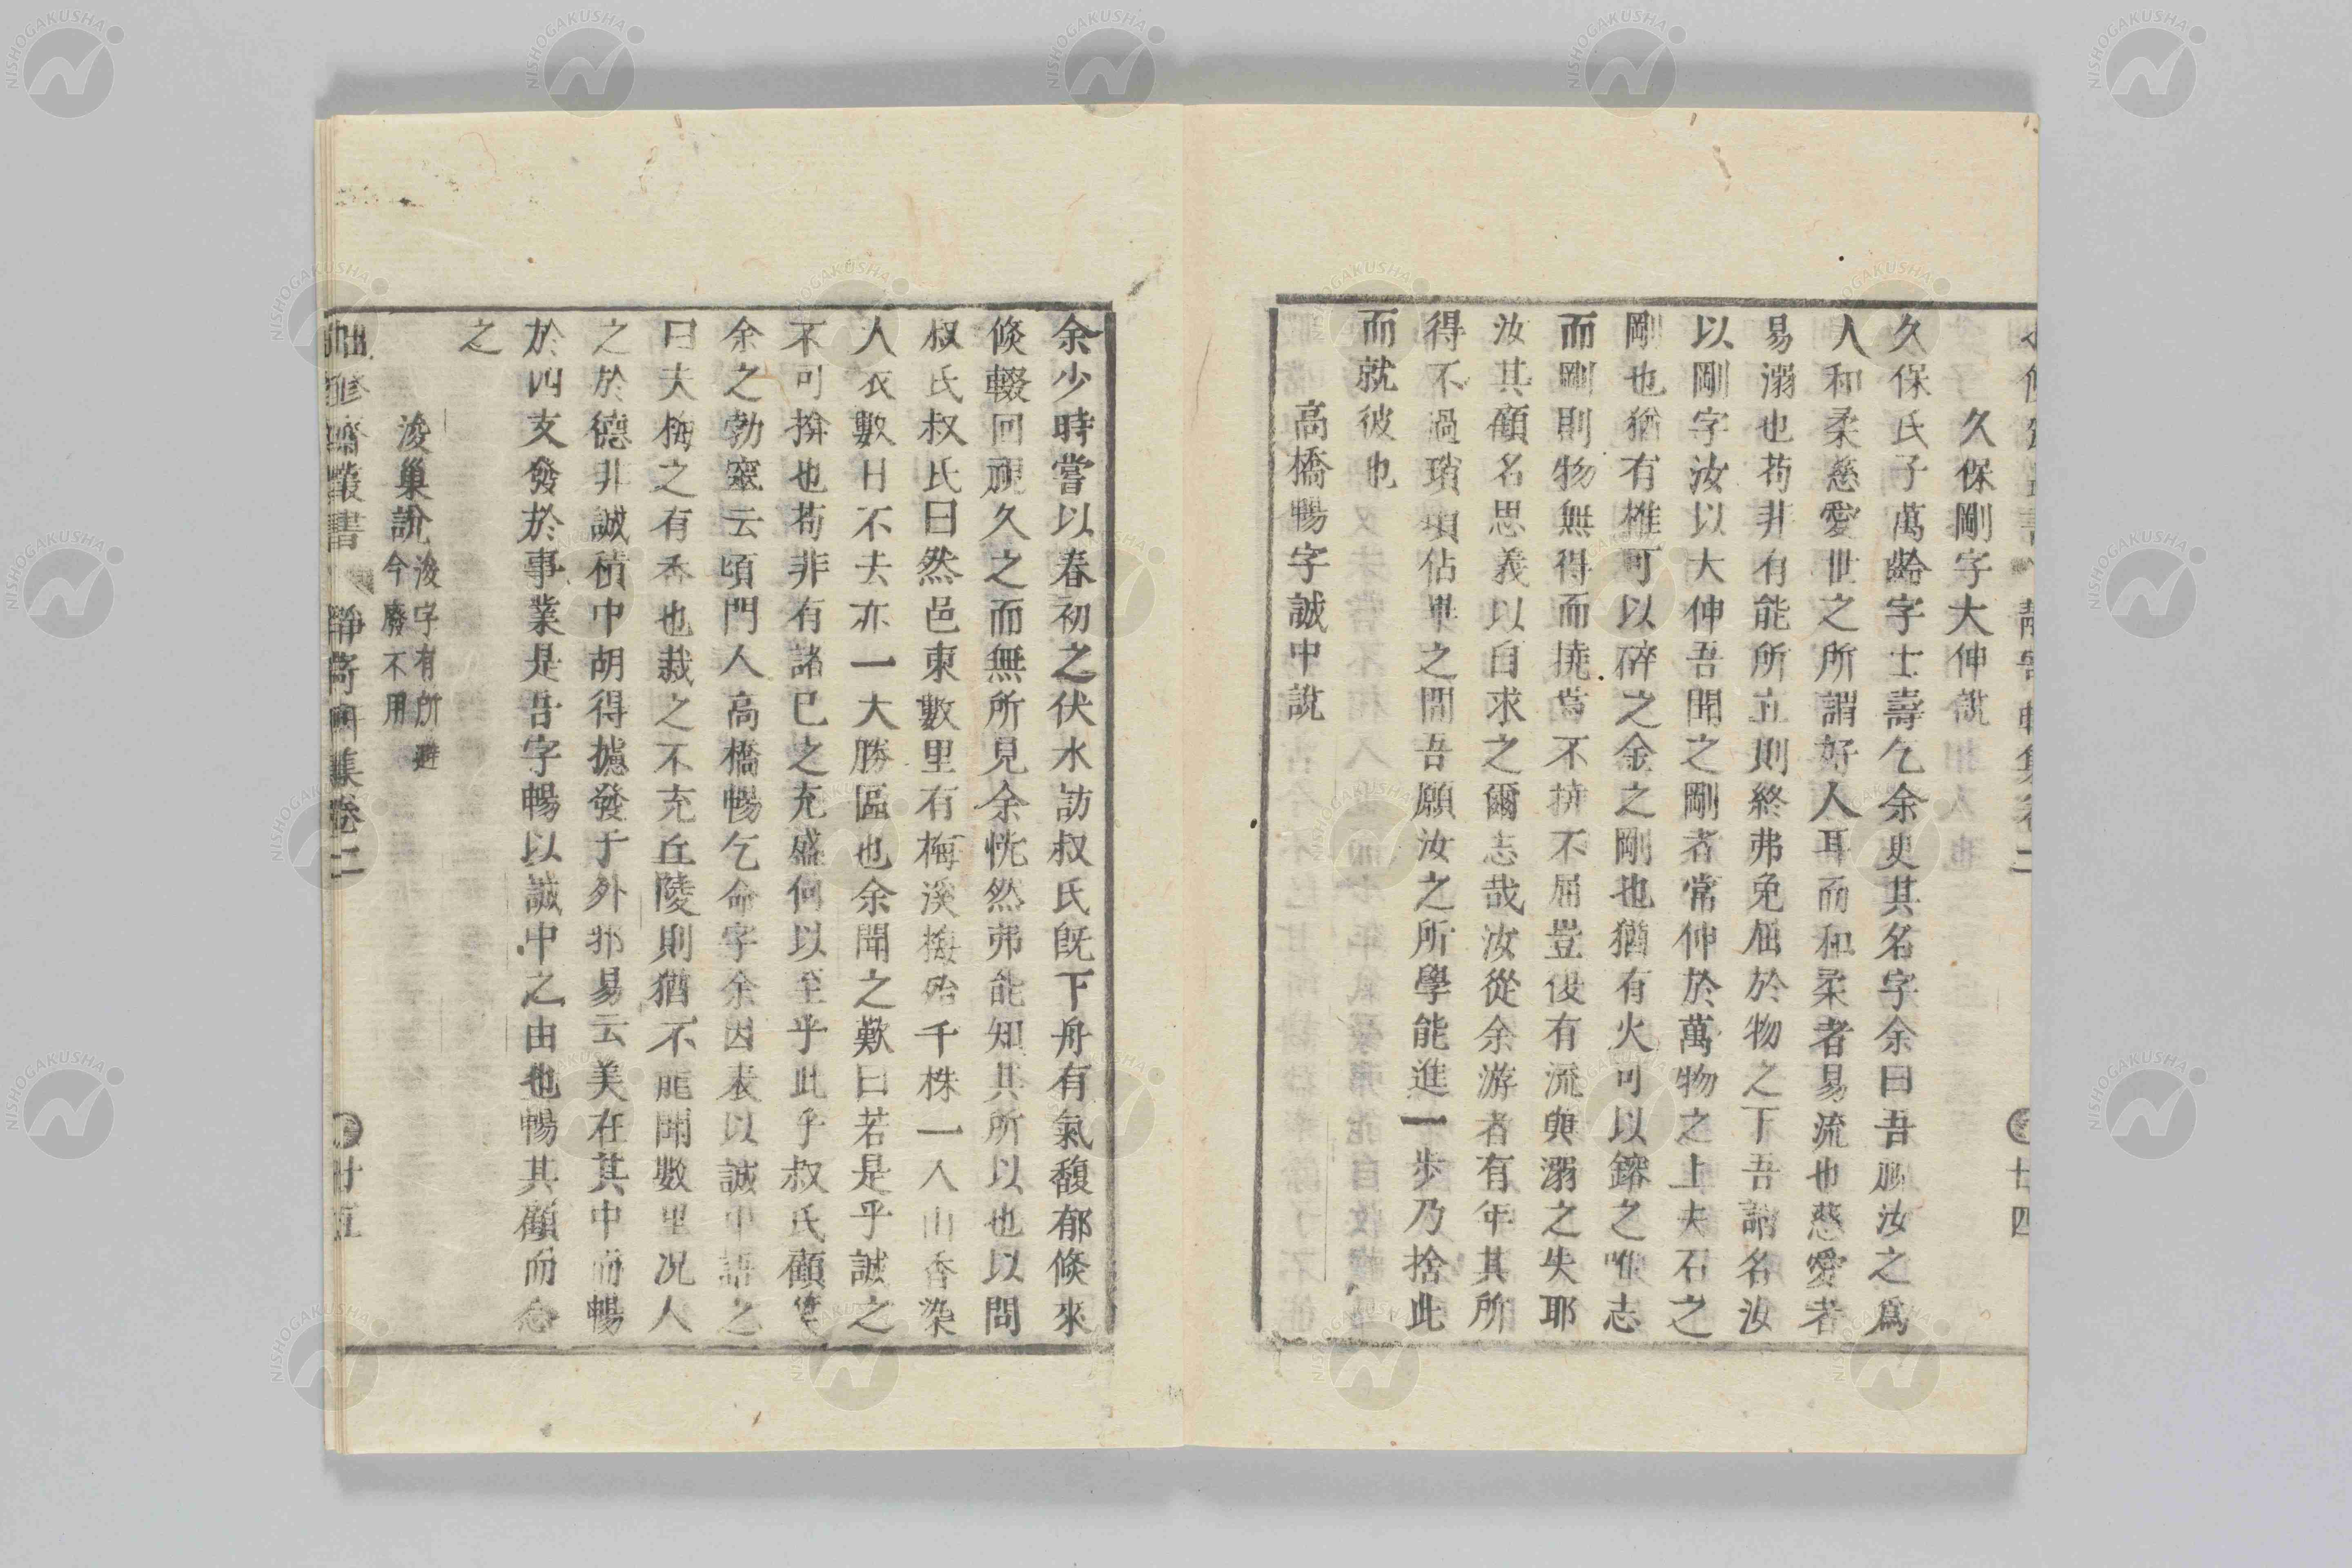 久保剛字大伸說
久保氏子萬齡字士壽乞余更其名字余曰吾視汝之爲
人和柔慈愛世之所謂好人耳而和柔者易流也慈愛者
易溺也苟非有能所立則終弗免屈於物之下吾請名汝
以剛字汝以大伸吾聞之剛者常伸於萬物之上夫石之
剛也猶有椎可以碎之金之剛也猶有火可以鎔之唯志
而剛則物無得而撓焉不撓不屈豈復有流與溺之失耶
汝其顧名思義以自求之爾志哉汝從余游者有年其所
得不過瑣瑣佔畢之間吾願汝之所學能進一步乃捨此
而就彼也
高橋暢字誠中說
廿四
余少時嘗以春初之伏水訪叔氏既下舟有氣馥郁倏來
倏輟回視久之而無所見余恍然弗能知其所以也以問
叔氏叔氏曰然邑東數里有梅溪梅殆千株一入山香染
人衣數日不去亦一大勝區也余聞之歎曰若是乎誠之
不可揜也苟非有諸己之充盛何以至乎此乎叔氏顧笑
余之勃窣云頃門人高橋暢乞命字余因表以誠中語之
曰夫梅之有香也栽之不充丘陵則猶不能聞數里況人
之於德非誠積中胡得攄發于外邪易云美在其中而暢
於四支發於事業是吾字暢以誠中之由也暢其顧而念
之
浚巢說 浚字有所避
今廢不用
叢書 靜寄軒集卷二
廿五
NISHOGAKUSHA